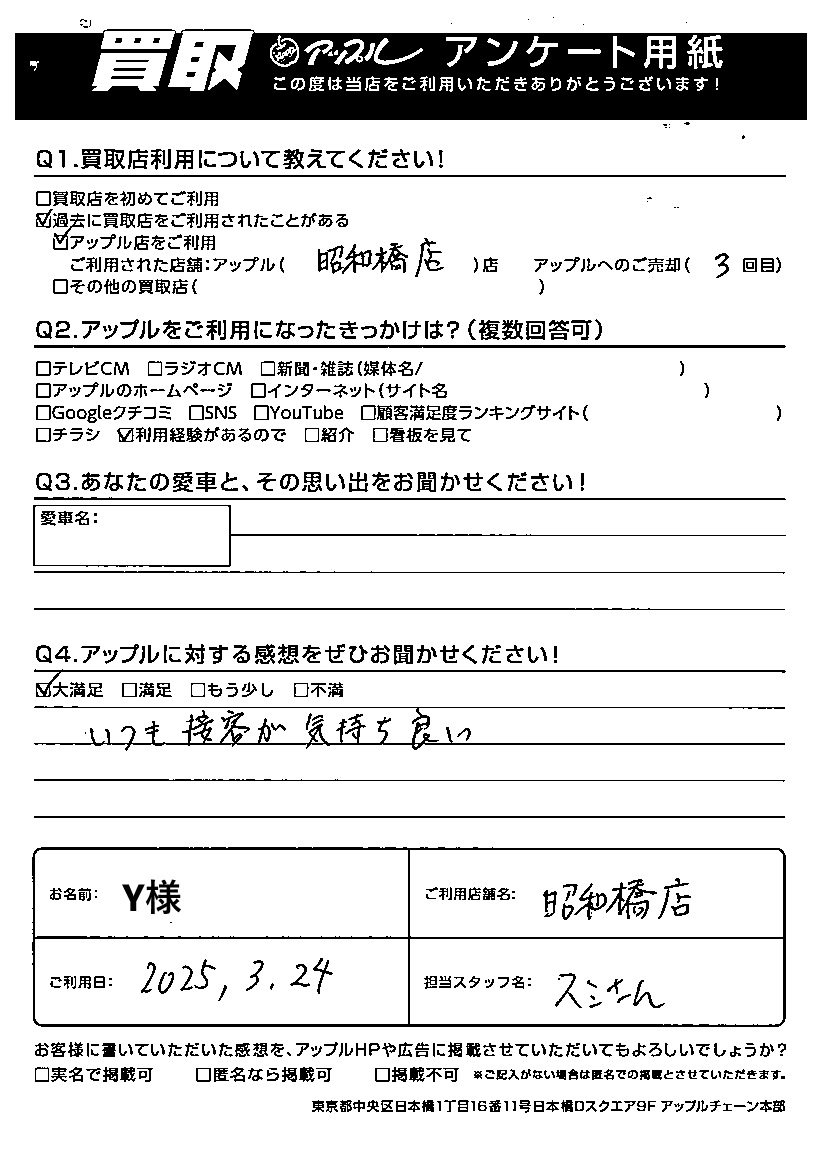 買取 アップル アンケート用紙
この度は当店をご利用いただきありがとうございます！
Q1.買取店利用について教えてください！
□買取店を初めてご利用
☑過去に買取店をご利用されたことがある
☑アップル店をご利用
ご利用された店舗：アップル（ 昭和橋店 ）店 アップルへのご売却（ 3 回目）
□その他の買取店（ ）
Q2.アップルをご利用になったきっかけは？（複数回答可）
□テレビCM □ラジオCM □新聞・雑誌（媒体名/ ）
□アップルのホームページ □インターネット（サイト名 ）
□Googleクチコミ □SNS □YouTube □顧客満足度ランキングサイト（ ）
□チラシ ☑利用経験があるので □紹介 □看板を見て
Q3.あなたの愛車と、その思い出をお聞かせください！
愛車名：
Q4.アップルに対する感想をぜひお聞かせください！
☑大満足 □満足 □もう少し □不満
いつも接客が気持ち良い
お名前： Y様 ご利用店舗名： 昭和橋店
ご利用日： 2025, 3. 24 担当スタッフ名： スミさん
お客様に書いていただいた感想を、アップルHPや広告に掲載させていただいてもよろしいでしょうか？
□実名で掲載可 □匿名なら掲載可 □掲載不可 ※ご記入がない場合は匿名での掲載とさせていただきます。
東京都中央区日本橋1丁目16番11号日本橋Dスクエア9F アップルチェーン本部